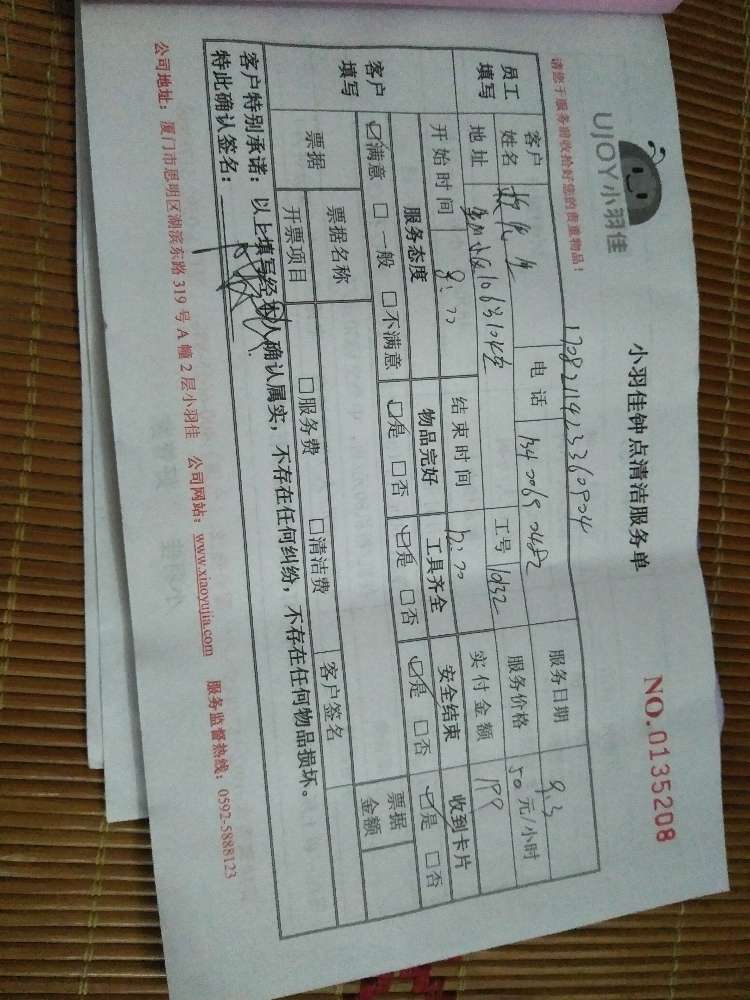 UJOY小羽佳
小羽佳钟点清洁服务单
NO.0135208
请您于服务前收拾好您的贵重物品！
员工填写
客户姓名
电话
服务日期 9.3
地址
工号 1032
服务价格 50元/小时
开始时间 8:00
结束时间 12:00
实付金额 199
客户填写
服务态度 物品完好 工具齐全 安全结束 收到卡片
☑满意 □一般 □不满意 ☑是 □否 ☑是 □否 ☑是 □否 ☑是 □否
票据
票据名称
客户签名
票据金额
开票项目 □服务费 □清洁费
客户特别承诺：以上填写经本人确认属实，不存在任何纠纷，不存在任何物品损坏。
特此确认签名：
公司地址：厦门市思明区湖滨东路319号A幢2层小羽佳 公司网站：www.xiaoyujia.com 服务监督热线：0592-5888123